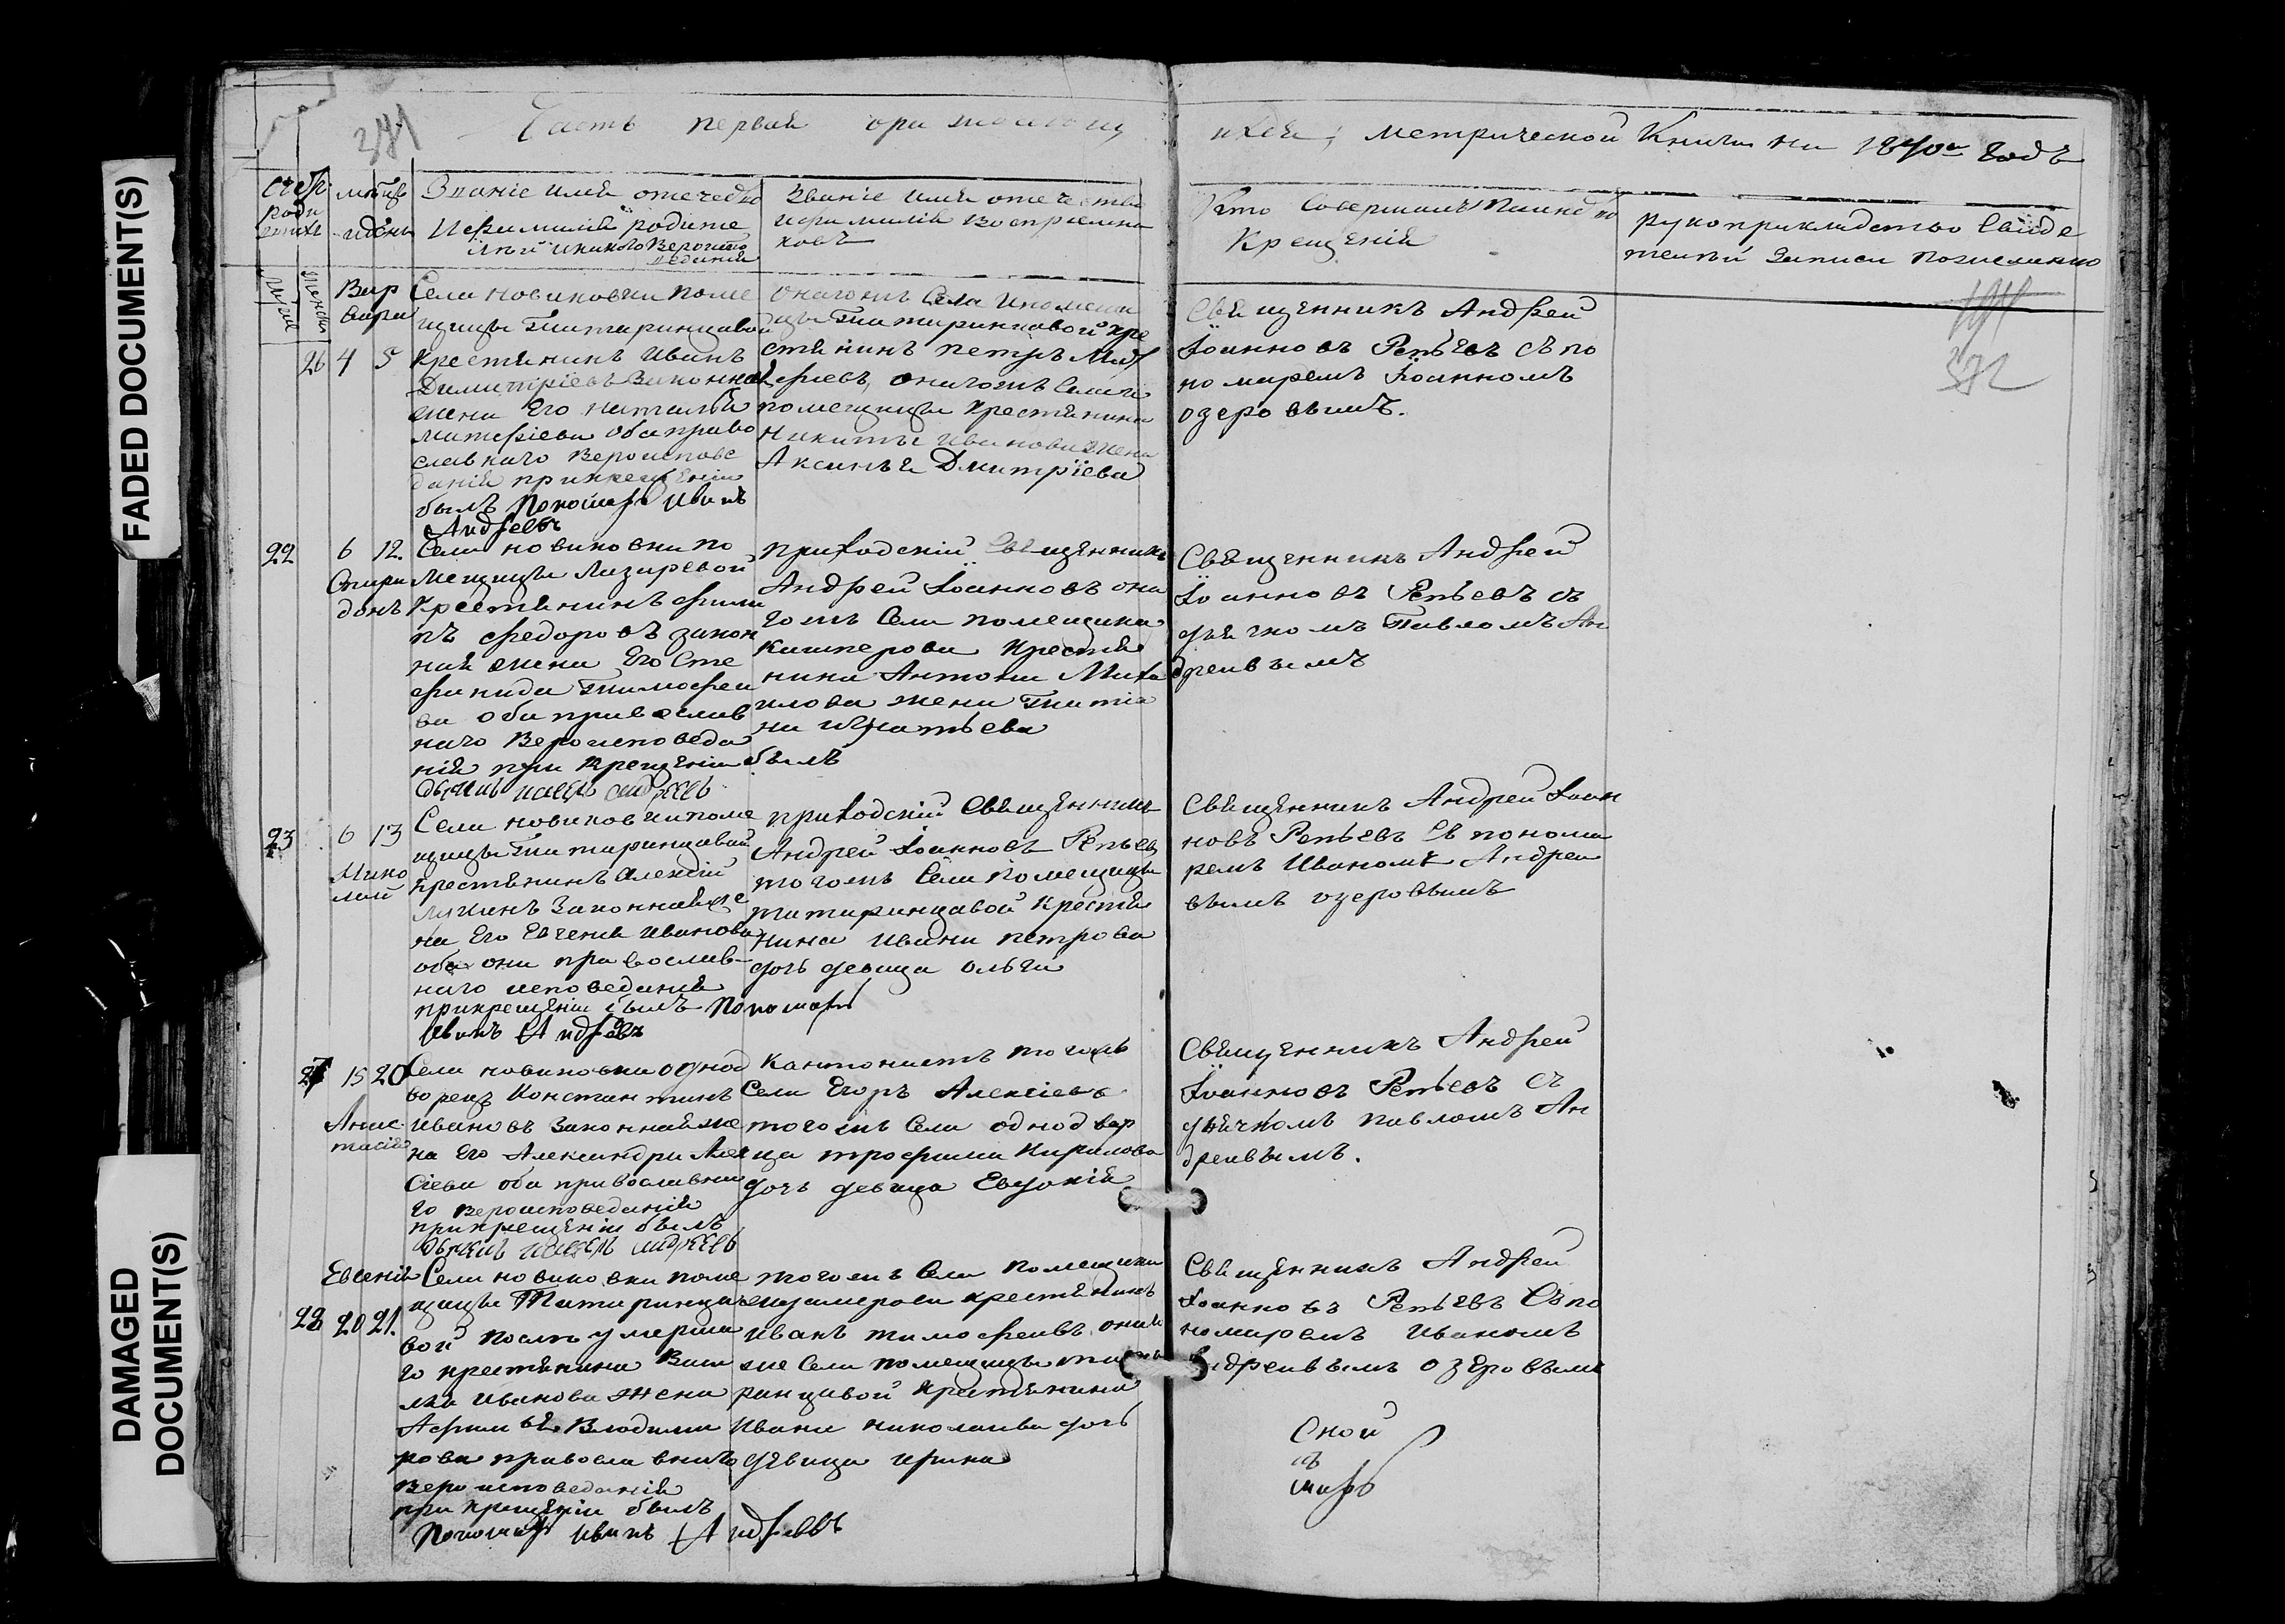 FADED DOCUMENT(S)
DAMAGED
DOCUMENT(S)
381
Часть первая о родившихся Метрической Книги на 1840й Годъ
Счетъ родившихъ
мѣсяцъ и день
Званіе имя отечество
и фамилія родите
лей и какого Вероиспо
веданія
Званіе имя отечество
и фамилія восприемни
ковъ
Кто Совершалъ Таинство
Крещенія
рукоприкладство Свиде
телей записи по желанию
26 4 5
Вар
вара
Села новиковки поме
щицы Татаринцавой
крестянинъ Иванъ
Димитріевъ Законная
жена Его наталья
матфіева оба право
славнаго Вероиспове
данія при крещеніи
былъ Пономарь Иванъ
Андреевъ
Онагожъ Села и помещи
цы Татаринцавой кре
стянинъ петръ
помещицы крестянина
Никиты Иванова жена
Аксинья Дмитріева
Священникъ Андрей
Іоанновъ Репьевъ съ по
номаремъ Іоанномъ
озеровымъ.
382
22 6 12.
Спири
донъ
Села новиковки по
мещицы Лазаревой
Крестянинъ фили
пъ федоровъ закон
ная жена Его Сте
фанида Тимофеи
ва оба православ
наго Вероисповеда
нія при крещеніи былъ
дьячикъ павелъ андреевъ
приходскій Священникъ
Андрей Іоанновъ она
гожъ Села помещика
крестя
нина Антона Миха
илова жена Татіа
на Игнатьева
Священникъ Андрей
Іоанновъ Репьевъ съ
дьячкомъ Павломъ Ан
дреивымъ
23 6 13
Нико
лай
Села новиковки поме
щицы Татаринцавой
крестянинъ Алексій
Лукинъ Законная же
на Его Евгения Иванова
оба они православ-
наго исповеданія
при крещеніи былъ Пономарь
Иванъ Андреевъ
приходскій Священникъ
Андрей Іоанновъ Репьев
тогожъ Села Помещицы
татаринцавой крестя
нина Ивана петрова
дочь девица Ольга
Священникъ Андрей Іоан
новъ Репьевъ Съ понома
ремъ Иваномъ Андрей
вымъ озеровымъ
27 15 20
Анас
тасія
Села новиковки однод
ворецъ Константинъ
Ивановъ Законная же
на Его Александра Алек
сіева оба православна
го вероисповеданія
при крещеніи былъ
дьячикъ павелъ андреевъ
Кантонистъ тогожъ
Села Егоръ Алексіевъ
тогожъ Села однодвор
ца трофима Кирилова
дочь девица Евдокія
Священникъ Андрей
Іоанновъ Репьевъ съ
дьячкомъ павломъ Ан
дреивымъ.
28 20 21.
Евгенія
Села новиковки поме
щицы Татаринца
вой послѣ умерша
го крестянина Васи
лья Иванова Жена
Афимья Владими
рова православнаго
Вероисповеданія
при крещеніи былъ
Пономарь Иванъ Андреевъ
тогожъ Села помещика
крестянинъ
Иванъ тимофеивъ, онаго
же Села помещицы тата
ринцавой крестянина
Ивана николаива дочь
девица Ирина
Священникъ Андрей
Іоанновъ Репьевъ Съ по
номаремъ Иваномъ
Андреивымъ озеровымъ